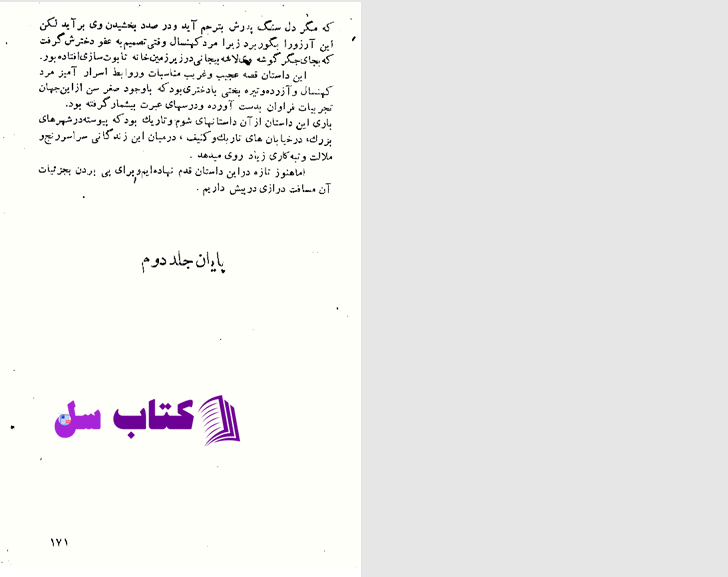 که مگر دل سنگ پدرش بترحم آید ودر صدد بخشیدن وی برآید لکن
این آرزورا بگور برد زیرا مرد کهنسال وقتی تصمیم به عفو دخترش گرفت
که بجای جگر گوشه وی لاشه بیجانی در زیر زمین خانه تابوت سازی افتاده بود.
این داستان قصه عجیب وغریب مناسبات وروابط اسرار آمیز مرد
کهنسال وآزرده وتیره بختی بادختری بود که باوجود صغر سن از این جهان
تجربیات فراوان بدست آورده ودرسهای عبرت بیشمار گرفته بود.
باری این داستان از آن داستانهای شوم وتاریك بود که پیوسته درشهرهای
بزرك، درخیابان های تاریك وکثیف ، درمیان این زندگانی سراسر رنج و
ملالت وتبه کاری زیاد روی میدهد .
اماهنوز تازه دراین داستان قدم نهاده ایم وبرای پی بردن بجزئیات
آن مسافت درازی در پیش داریم .
پایان جلد دوم
کتاب سل
۱۷۱